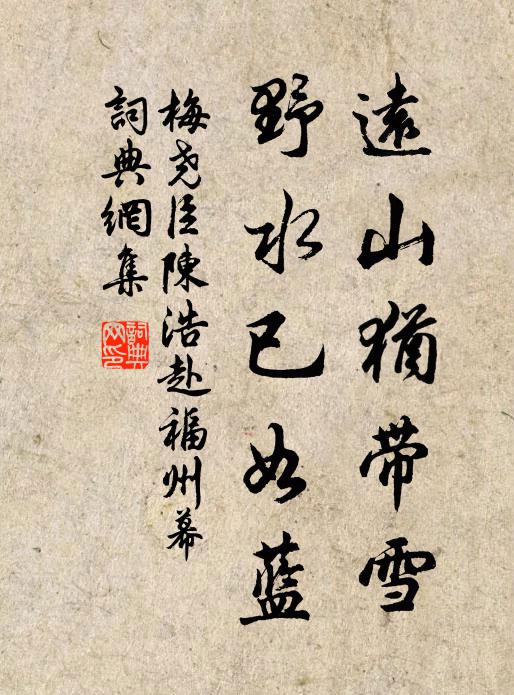 遠山猶帶雪
野水已如藍
梅尧臣陳浩赴福州幕
詞典網集
詞典网印